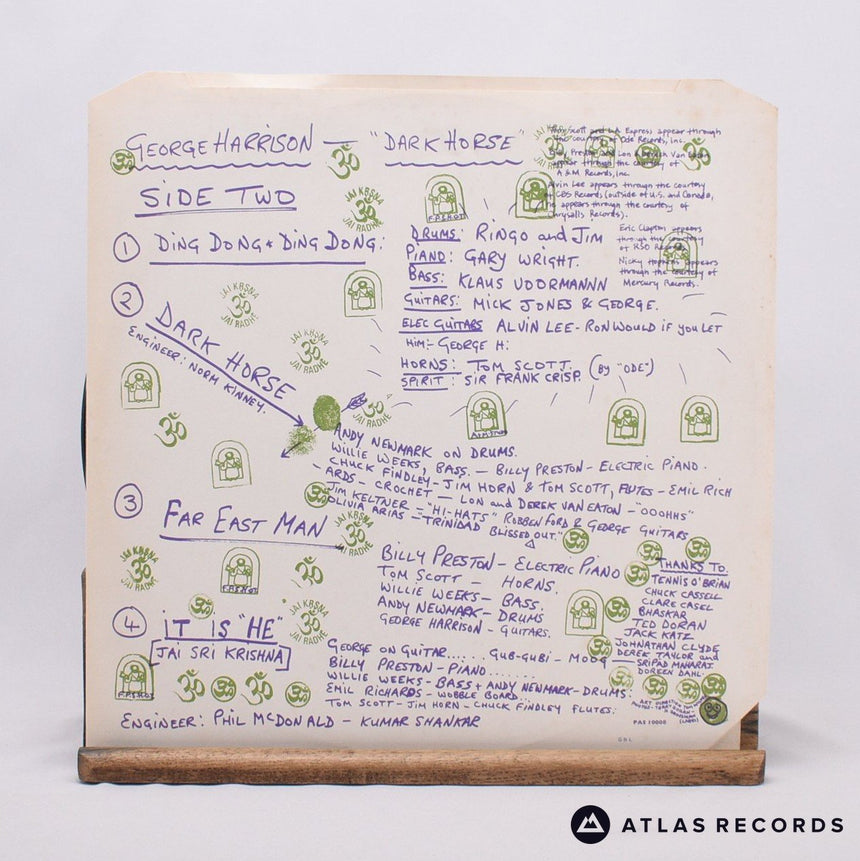 GEORGE HARRISON — "DARK HORSE"
SIDE TWO
Scott and L.A. Express appear through
the courtesy Ode Records, Inc.
appear through the courtesy of
A&M Records, Inc.
Alvin Lee appears through the courtesy
CBS Records (outside of U.S. and Canada,
he appears through the courtesy of
Chrysalis Records).
Eric Clapton appears
through the courtesy
of RSO Records.
Nicky Hopkins appears
through the courtesy of
Mercury Records.
1 DING DONG * DING DONG:
DRUMS: RINGO and JIM
PIANO: GARY WRIGHT.
BASS: KLAUS VOORMANNN
GUITARS: MICK JONES & GEORGE.
ELEC GUITARS ALVIN LEE - RON WOULD IF YOU LET
HIM:- GEORGE H:
HORNS: TOM SCOTT. (BY "ODE")
SPIRIT: SIR FRANK CRISP.
2 DARK HORSE
ENGINEER: NORM KINNEY.
ANDY NEWMARK ON DRUMS.
WILLIE WEEKS, BASS. — BILLY PRESTON - ELECTRIC PIANO.
CHUCK FINDLEY - JIM HORN & TOM SCOTT, FLUTES - EMIL RICH
-ARDS - CROCHET — LON and DEREK VAN EATON - "OOOHHS"
JIM KELTNER = "HI-HATS" ROBBEN FORD & GEORGE GUITARS
OLIVIA ARIAS - "TRINIDAD BLISSED OUT"
3 FAR EAST MAN
BILLY PRESTON - ELECTRIC PIANO
TOM SCOTT - HORNS.
WILLIE WEEKS - BASS.
ANDY NEWMARK - DRUMS
GEORGE HARRISON - GUITARS.
THANKS TO.
TENNIS O'BRIAN
CHUCK CASSELL
CLARE CASEL
BHASKAR
TED DORAN
JACK KATZ
JOHNATHAN CLYDE
DEREK TAYLOR and
SRIPAD MAHARAJ
DOREEN DAHL
4 iT IS "HE"
[JAI SRI KRISHNA]
GEORGE ON GUITAR...... GUB-GUBI - MOOG
BILLY PRESTON - PIANO.......
WILLIE WEEKS - BASS + ANDY NEWMARK - DRUMS:
EMIL RICHARDS - WOBBLE BOARD...
TOM SCOTT - JIM HORN - CHUCK FINDLEY FLUTES.
ENGINEER: PHIL McDONALD - KUMAR SHANKAR
JAI KRSNA
JAI RADHE
JAI KRSNA
JAI RADHE
JAI KRSNA
JAI RADHE
JAI KRSNA
JAI RADHE
JAI KRSNA
JAI RADHE
F.P.S.H.O.T.
F.P.S.H.O.T.
F.P.S.H.O.T.
ॐ
PAS 10008
ATLAS RECORDS